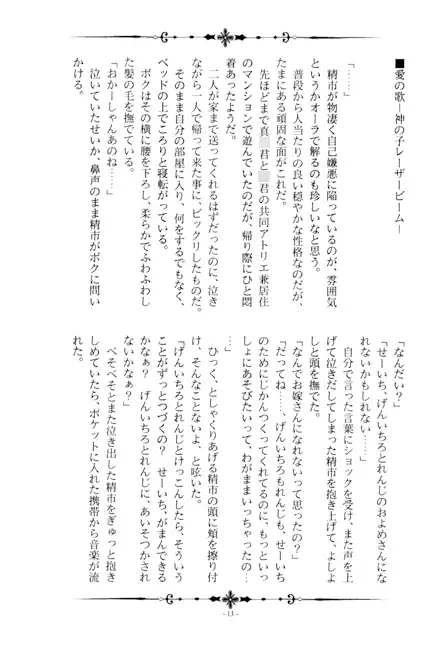 ■愛の歌―神の子レーザービーム―
「……」
　精市が物凄く自己嫌悪に陥っているのが、雰囲気
というかオーラで解るのも珍しいなと思う。
　普段から人当たりの良い穏やかな性格なのだが、
たまにある頑固な面がこれだ。
　先ほどまで真 君と 君の共同アトリエ兼居住
のマンションで遊んでいたのだが、帰り際にひと悶
着あったようだ。
　二人が家まで送ってくれるはずだったのに、泣き
ながら一人で帰って来た事に、ビックリしたものだ。
　そのまま自分の部屋に入り、何をするでもなく、
ベッドの上でころりと寝転がっている。
　ボクはその横に腰を下ろし、柔らかでふわふわし
た髪の毛を撫でている。
「おかーしゃんあのね……」
　泣いていたせいか、鼻声のまま精市がボクに問い
かける。
「なんだい？」
「せーいち、げんいちろとれんじのおよめさんにな
れないかもしれない……」
　自分で言った言葉にショックを受け、また声を上
げて泣きだしてしまった精市を抱き上げて、よしよ
しと頭を撫でた。
「なんでお嫁さんになれないって思ったの？」
「だってね……、げんいちろもれんじも、せーいち
のためにじかんつくってくれてるのに、もっといっ
しょにあそびたいって、わがままいっちゃったの…
…」
　ひっく、としゃくりあげる精市の頭に頬を擦り付
け、そんなことないよ、と呟いた。
「げんいちろとれんじとけっこんしたら、そういう
ことがずっとつづくの？　せーいち、がまんできる
かなぁ？　げんいちろとれんじに、あいそつかされ
ないかなぁ？」
　べそべそとまた泣き出した精市をぎゅっと抱き
しめていたら、ポケットに入れた携帯から音楽が流
れた。
- 13 -